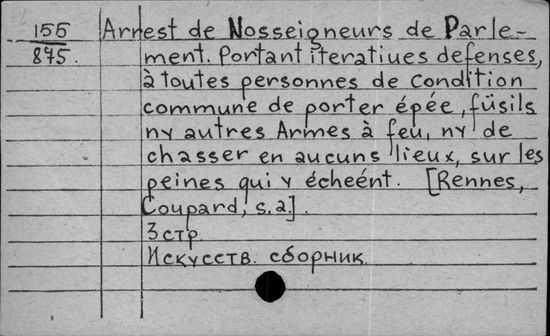 155 Arrest de Nosseigneurs de Parle-
875. ment. Portant iteratiues defenses,
à toutes personnes de condition
commune de porter épée, füsils
ny autres Armes à feu, ny de
chasser en aucuns lieux, sur les
peines qui y écheént. [Rennes,
Coupard, s.a.].
3 стр.
Искусств. сборник.